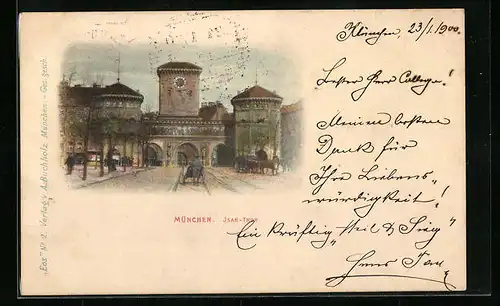 München, 23/1.1900.
Lieber Herr College!
Meinen besten
Dank für
Ihre Liebens-
würdigkeit!
Ein kräftig „Heil & Sieg"
Hans
MÜNCHEN. JSAR-THOR
„Eos" No 2. Verlag v. A. Birchholz. München - Ges. gesch.